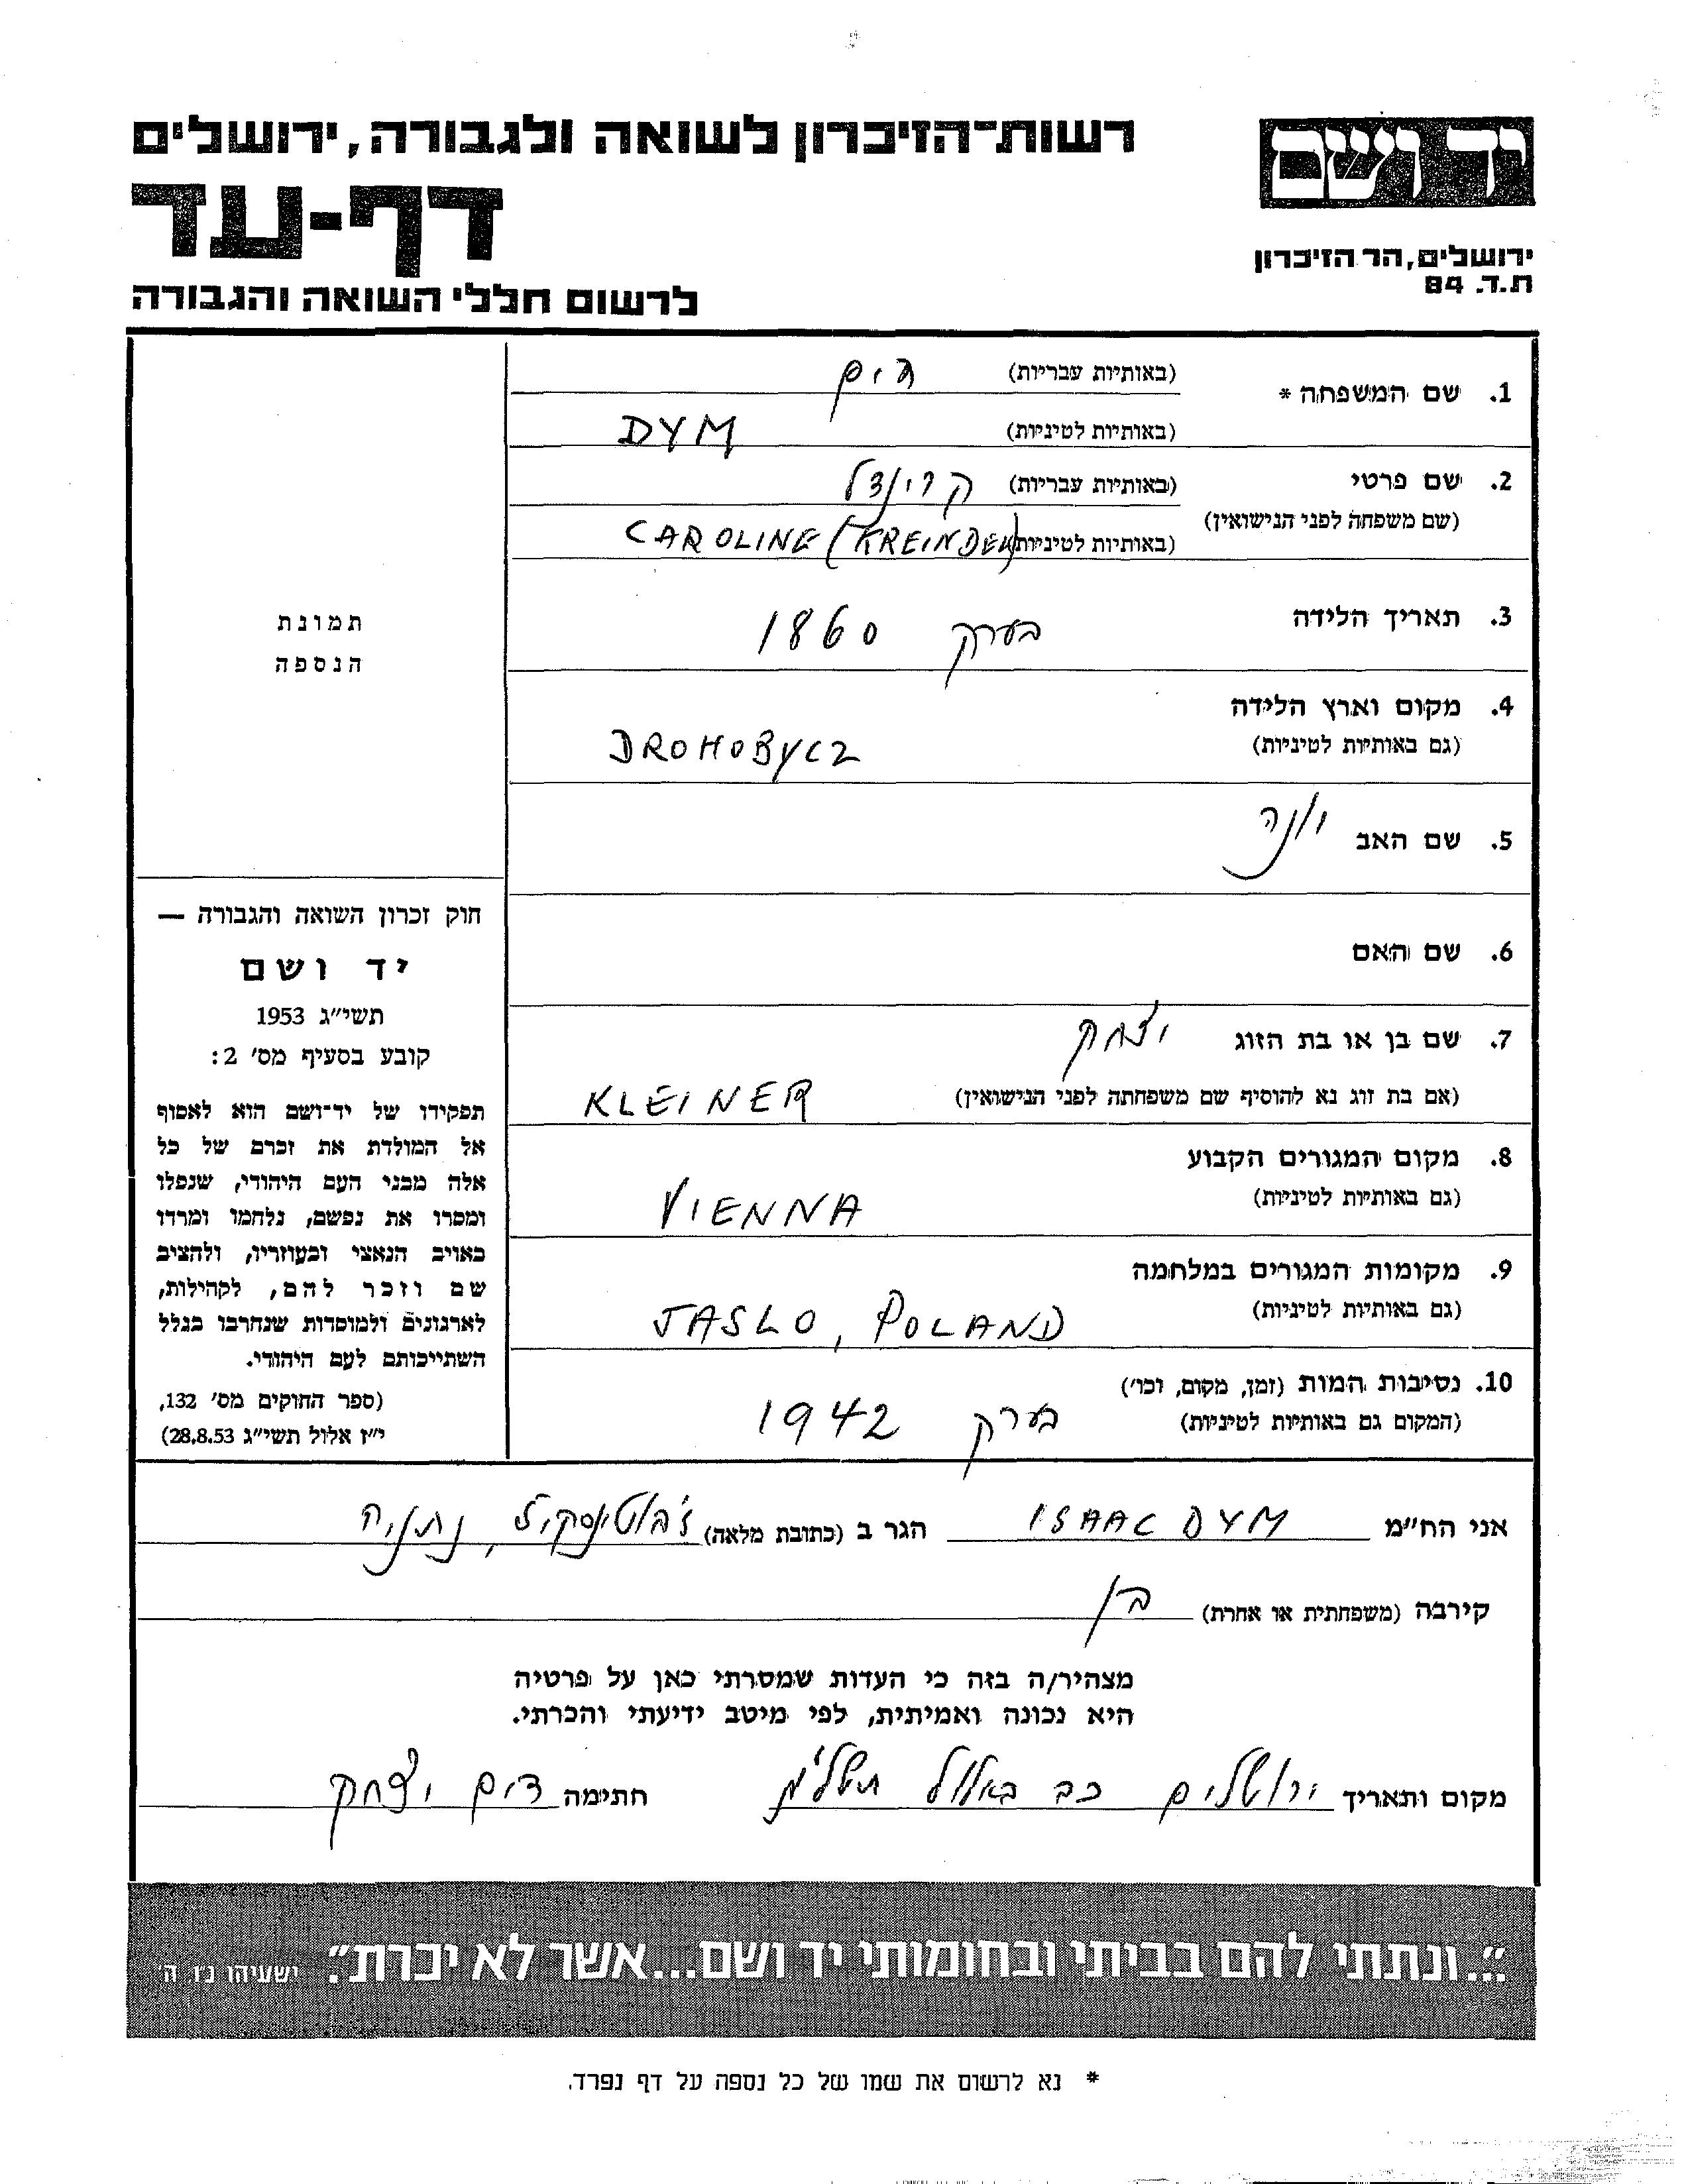 רשות־הזיכרון לשואה ולגבורה, ירושלים
דף-עד
לרשום חללי השואה והגבורה
יד ושם
ירושלים, הר הזיכרון
ת.ד. 84
1. שם המשפחה * (באותיות עבריות) דים
(באותיות לטיניות) DYM
2. שם פרטי (באותיות עבריות) קרינדל
(שם משפחה לפני הנישואין)
(באותיות לטיניות) CAROLINE (KREINDEL)
3. תאריך הלידה בערך 1860
4. מקום וארץ הלידה
(גם באותיות לטיניות) DROHOBYCZ
5. שם האב יונה
6. שם האם
7. שם בן או בת הזוג יצחק
(אם בת זוג נא להוסיף שם משפחתה לפני הנישואין) KLEINER
8. מקום המגורים הקבוע
(גם באותיות לטיניות) VIENNA
9. מקומות המגורים במלחמה
(גם באותיות לטיניות) JASLO, POLAND
10. נסיבות המות (זמן, מקום, וכו')
(המקום גם באותיות לטיניות) בערך 1942
תמונת
הנספה
חוק זכרון השואה והגבורה —
יד ושם
תשי״ג 1953
קובע בסעיף מס' 2:
תפקידו של יד־ושם הוא לאסוף
אל המולדת את זכרם של כל
אלה מבני העם היהודי, שנפלו
ומסרו את נפשם, נלחמו ומרדו
באויב הנאצי ובעוזריו, ולהציב
שם וזכר להם, לקהילות,
לארגונים ולמוסדות שנחרבו בגלל
השתייכותם לעם היהודי.
(ספר החוקים מס' 132,
י״ז אלול תשי״ג 28.8.53)
אני הח״מ ISAAC DYM הגר ב (כתובת מלאה) ז'בוטינסקי, נתניה
קירבה (משפחתית או אחרת) בן
מצהיר/ה בזה כי העדות שמסרתי כאן על פרטיה
היא נכונה ואמיתית, לפי מיטב ידיעתי והכרתי.
מקום ותאריך ירושלים כב באלול חתימה דים יצחק
"...ונתתי להם בביתי ובחומותי יד ושם...אשר לא יכרת". ישעיהו נ״ו ה'
* נא לרשום את שמו של כל נספה על דף נפרד.